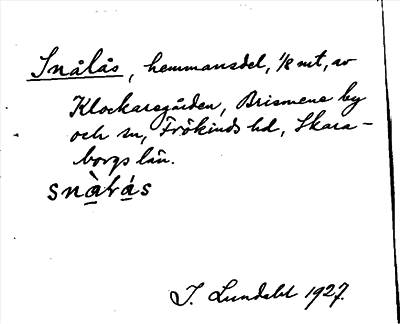 Snålås, hemmansdel, 1/8 mt, av
Klockaregården, Brismene by
och sn, Frökinds hd, Skara-
borgs län.
snàlás
J. Lundahl 1927.